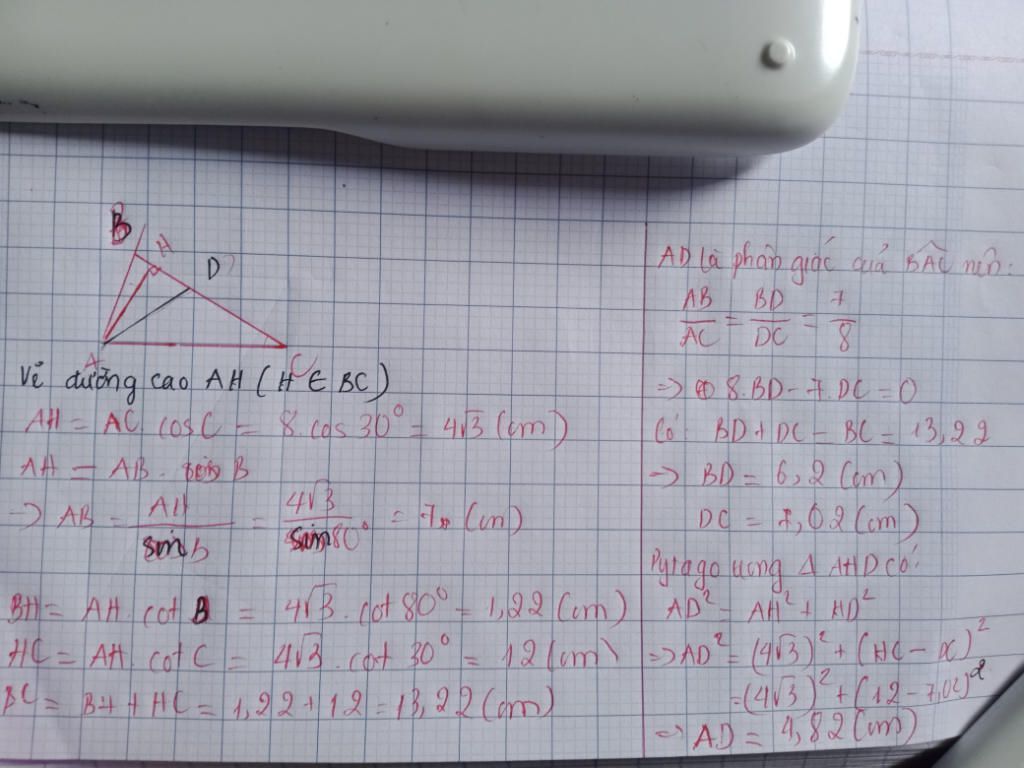 B
H
D
A
C
Vẽ đường cao AH (H ∈ BC)
AH = AC. cosC = 8. cos 30° = 4√3 (cm)
AH = AB. sin B
=> AB = AH / sin B = 4√3 / sin80° = 7 (cm)
BH = AH. cot B = 4√3. cot 80° = 1,22 (cm)
HC = AH. cot C = 4√3. cot 30° = 12 (cm)
BC = BH + HC = 1,22 + 12 = 13,22 (cm)
AD là phân giác của BAC nên:
AB / AC = BD / DC = 7 / 8
=> 8.BD - 7.DC = 0
Có BD + DC = BC = 13,22
=> BD = 6,2 (cm)
DC = 7,02 (cm)
Pytago Δ AHD có:
AD² = AH² + HD²
=> AD² = (4√3)² + (HC - DC)²
= (4√3)² + (12 - 7,02)²
=> AD = 4,82 (cm)